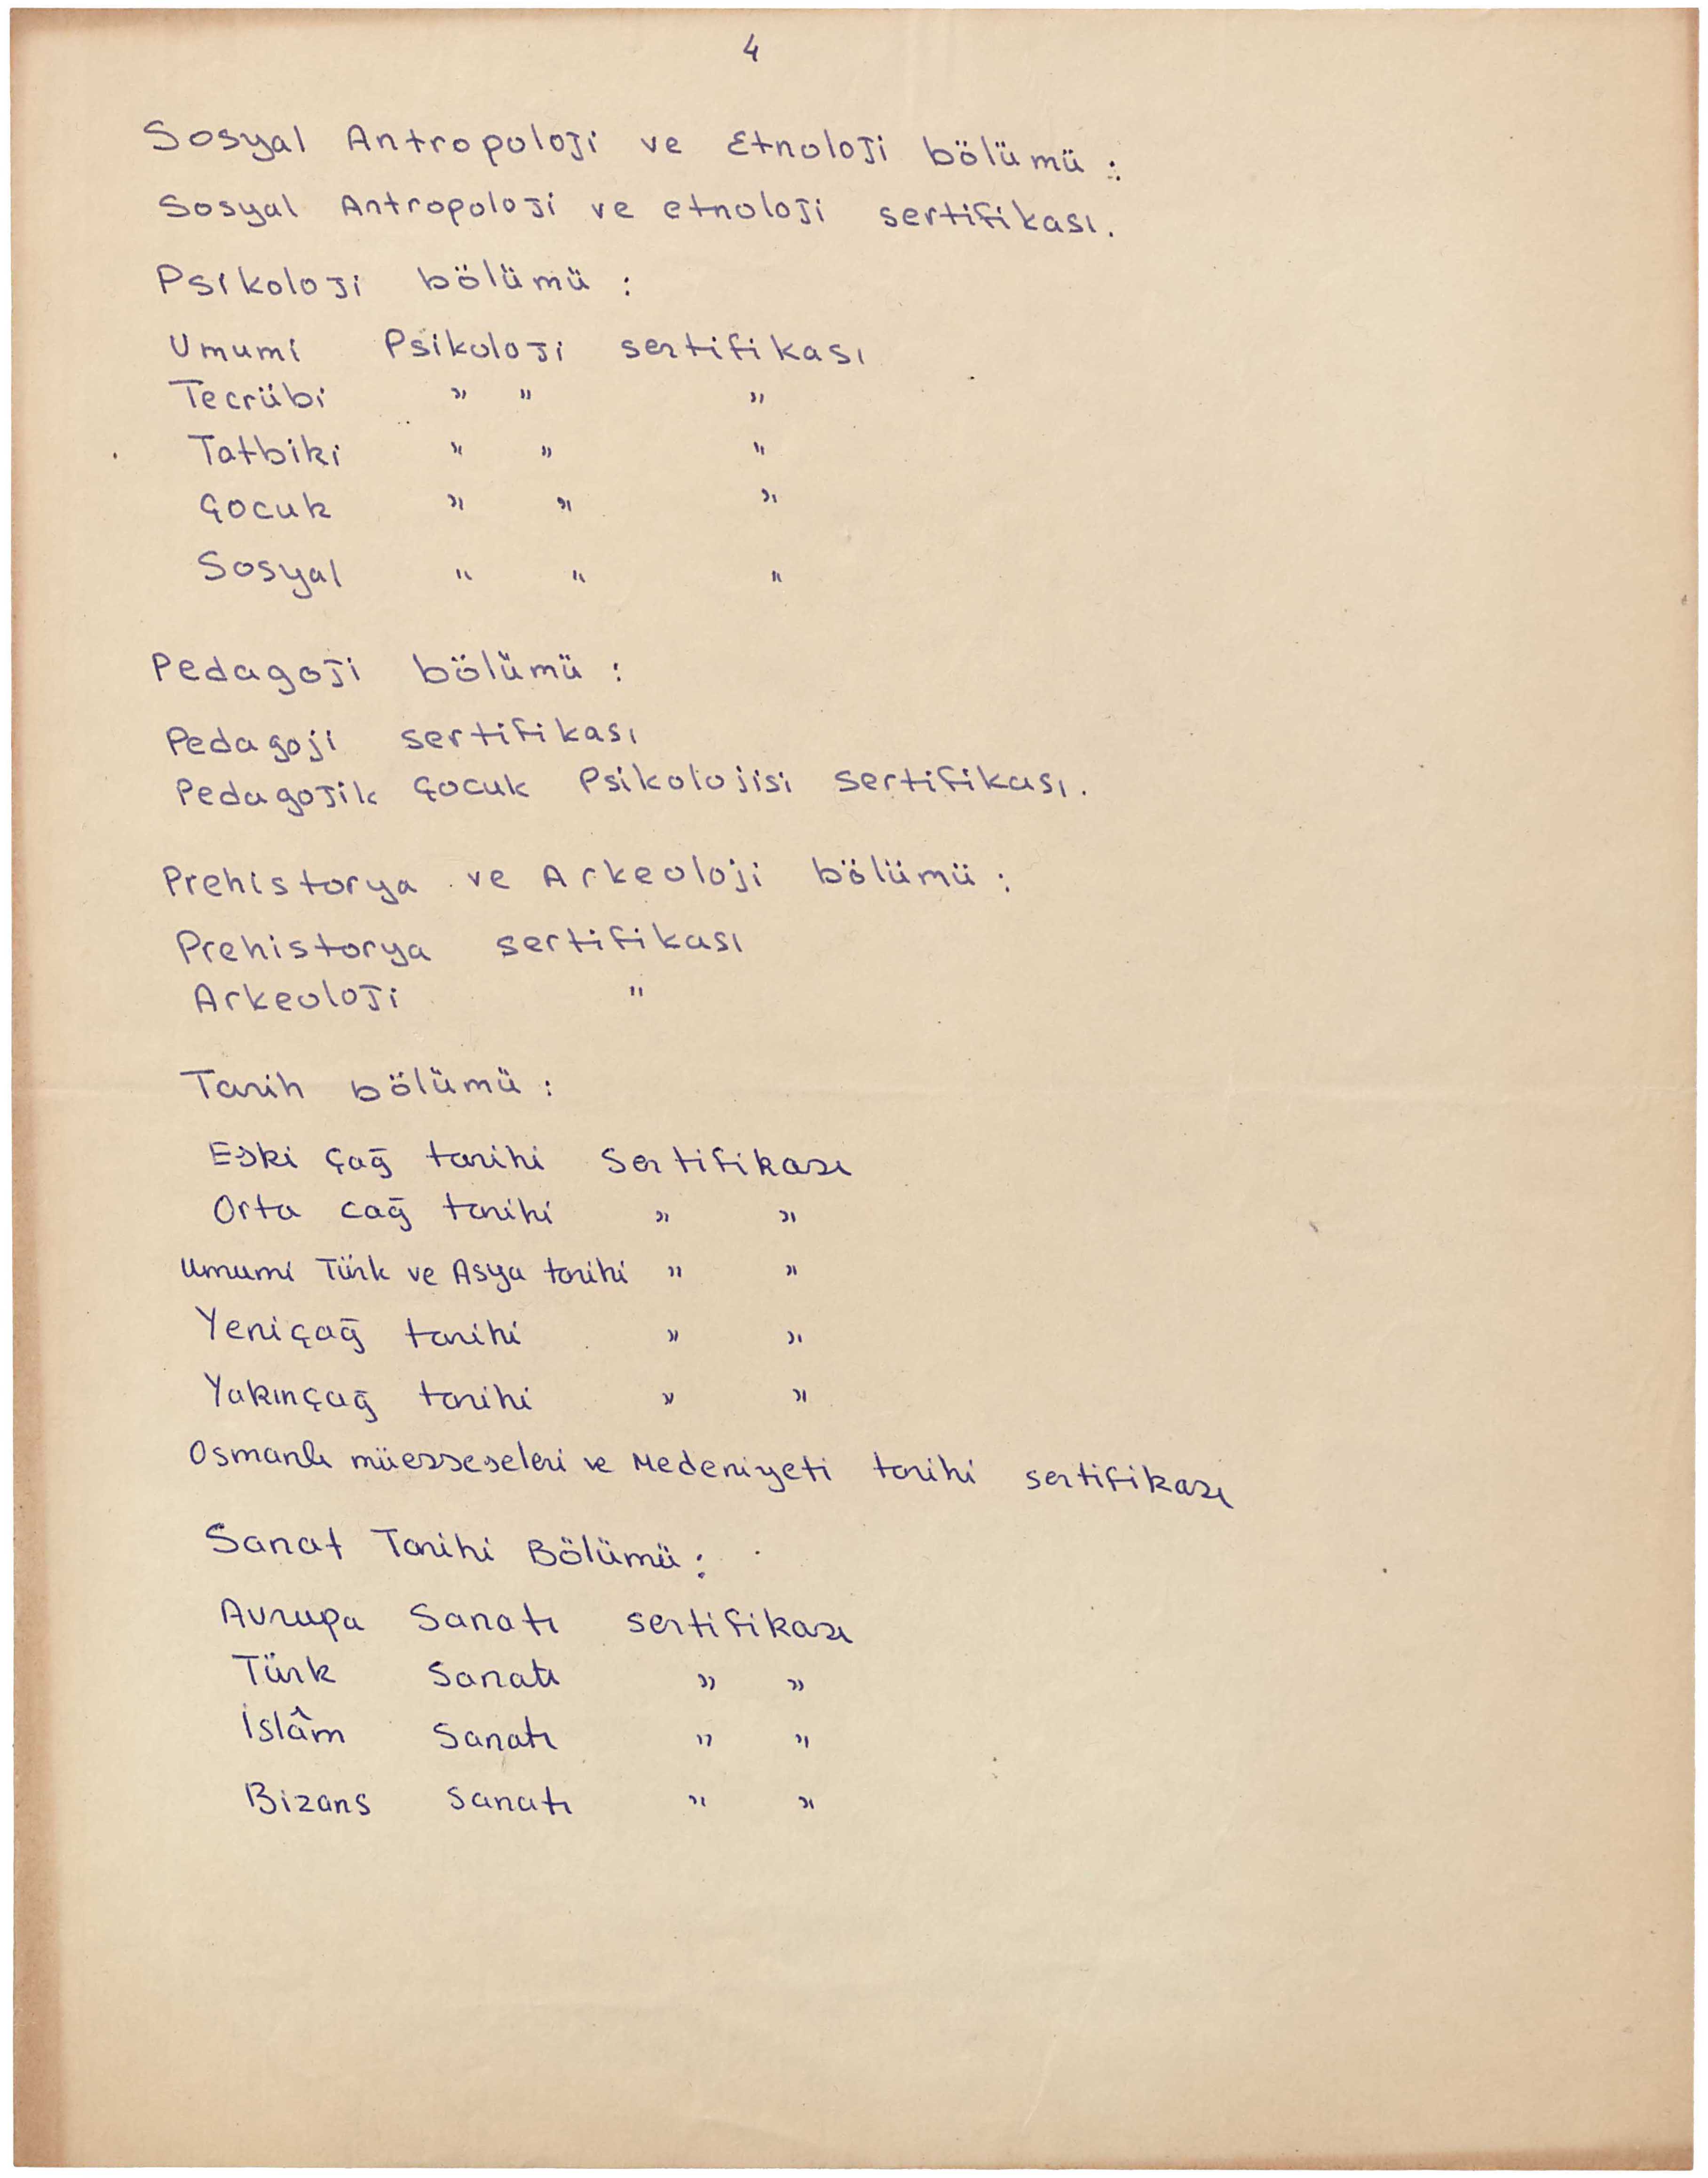 4
Sosyal Antropoloji ve Etnoloji bölümü :
Sosyal Antropoloji ve etnoloji sertifikası.
Psikoloji bölümü :
Umumi Psikoloji sertifikası
Tecrübi " " "
Tatbiki " " "
Çocuk " " "
Sosyal " " "
Pedagoji bölümü :
Pedagoji sertifikası
Pedagojik Çocuk Psikolojisi sertifikası.
Prehistorya ve Arkeoloji bölümü :
Prehistorya sertifikası
Arkeoloji "
Tarih bölümü :
Eski Çağ tarihi Sertifikası
Orta cağ tarihi " "
Umumi Türk ve Asya tarihi " "
Yeniçağ tarihi " "
Yakınçağ tarihi " "
Osmanlı müesseseleri ve Medeniyeti tarihi sertifikası
Sanat Tarihi Bölümü :
Avrupa Sanatı sertifikası
Türk Sanatı " "
İslâm Sanatı " "
Bizans Sanatı " "